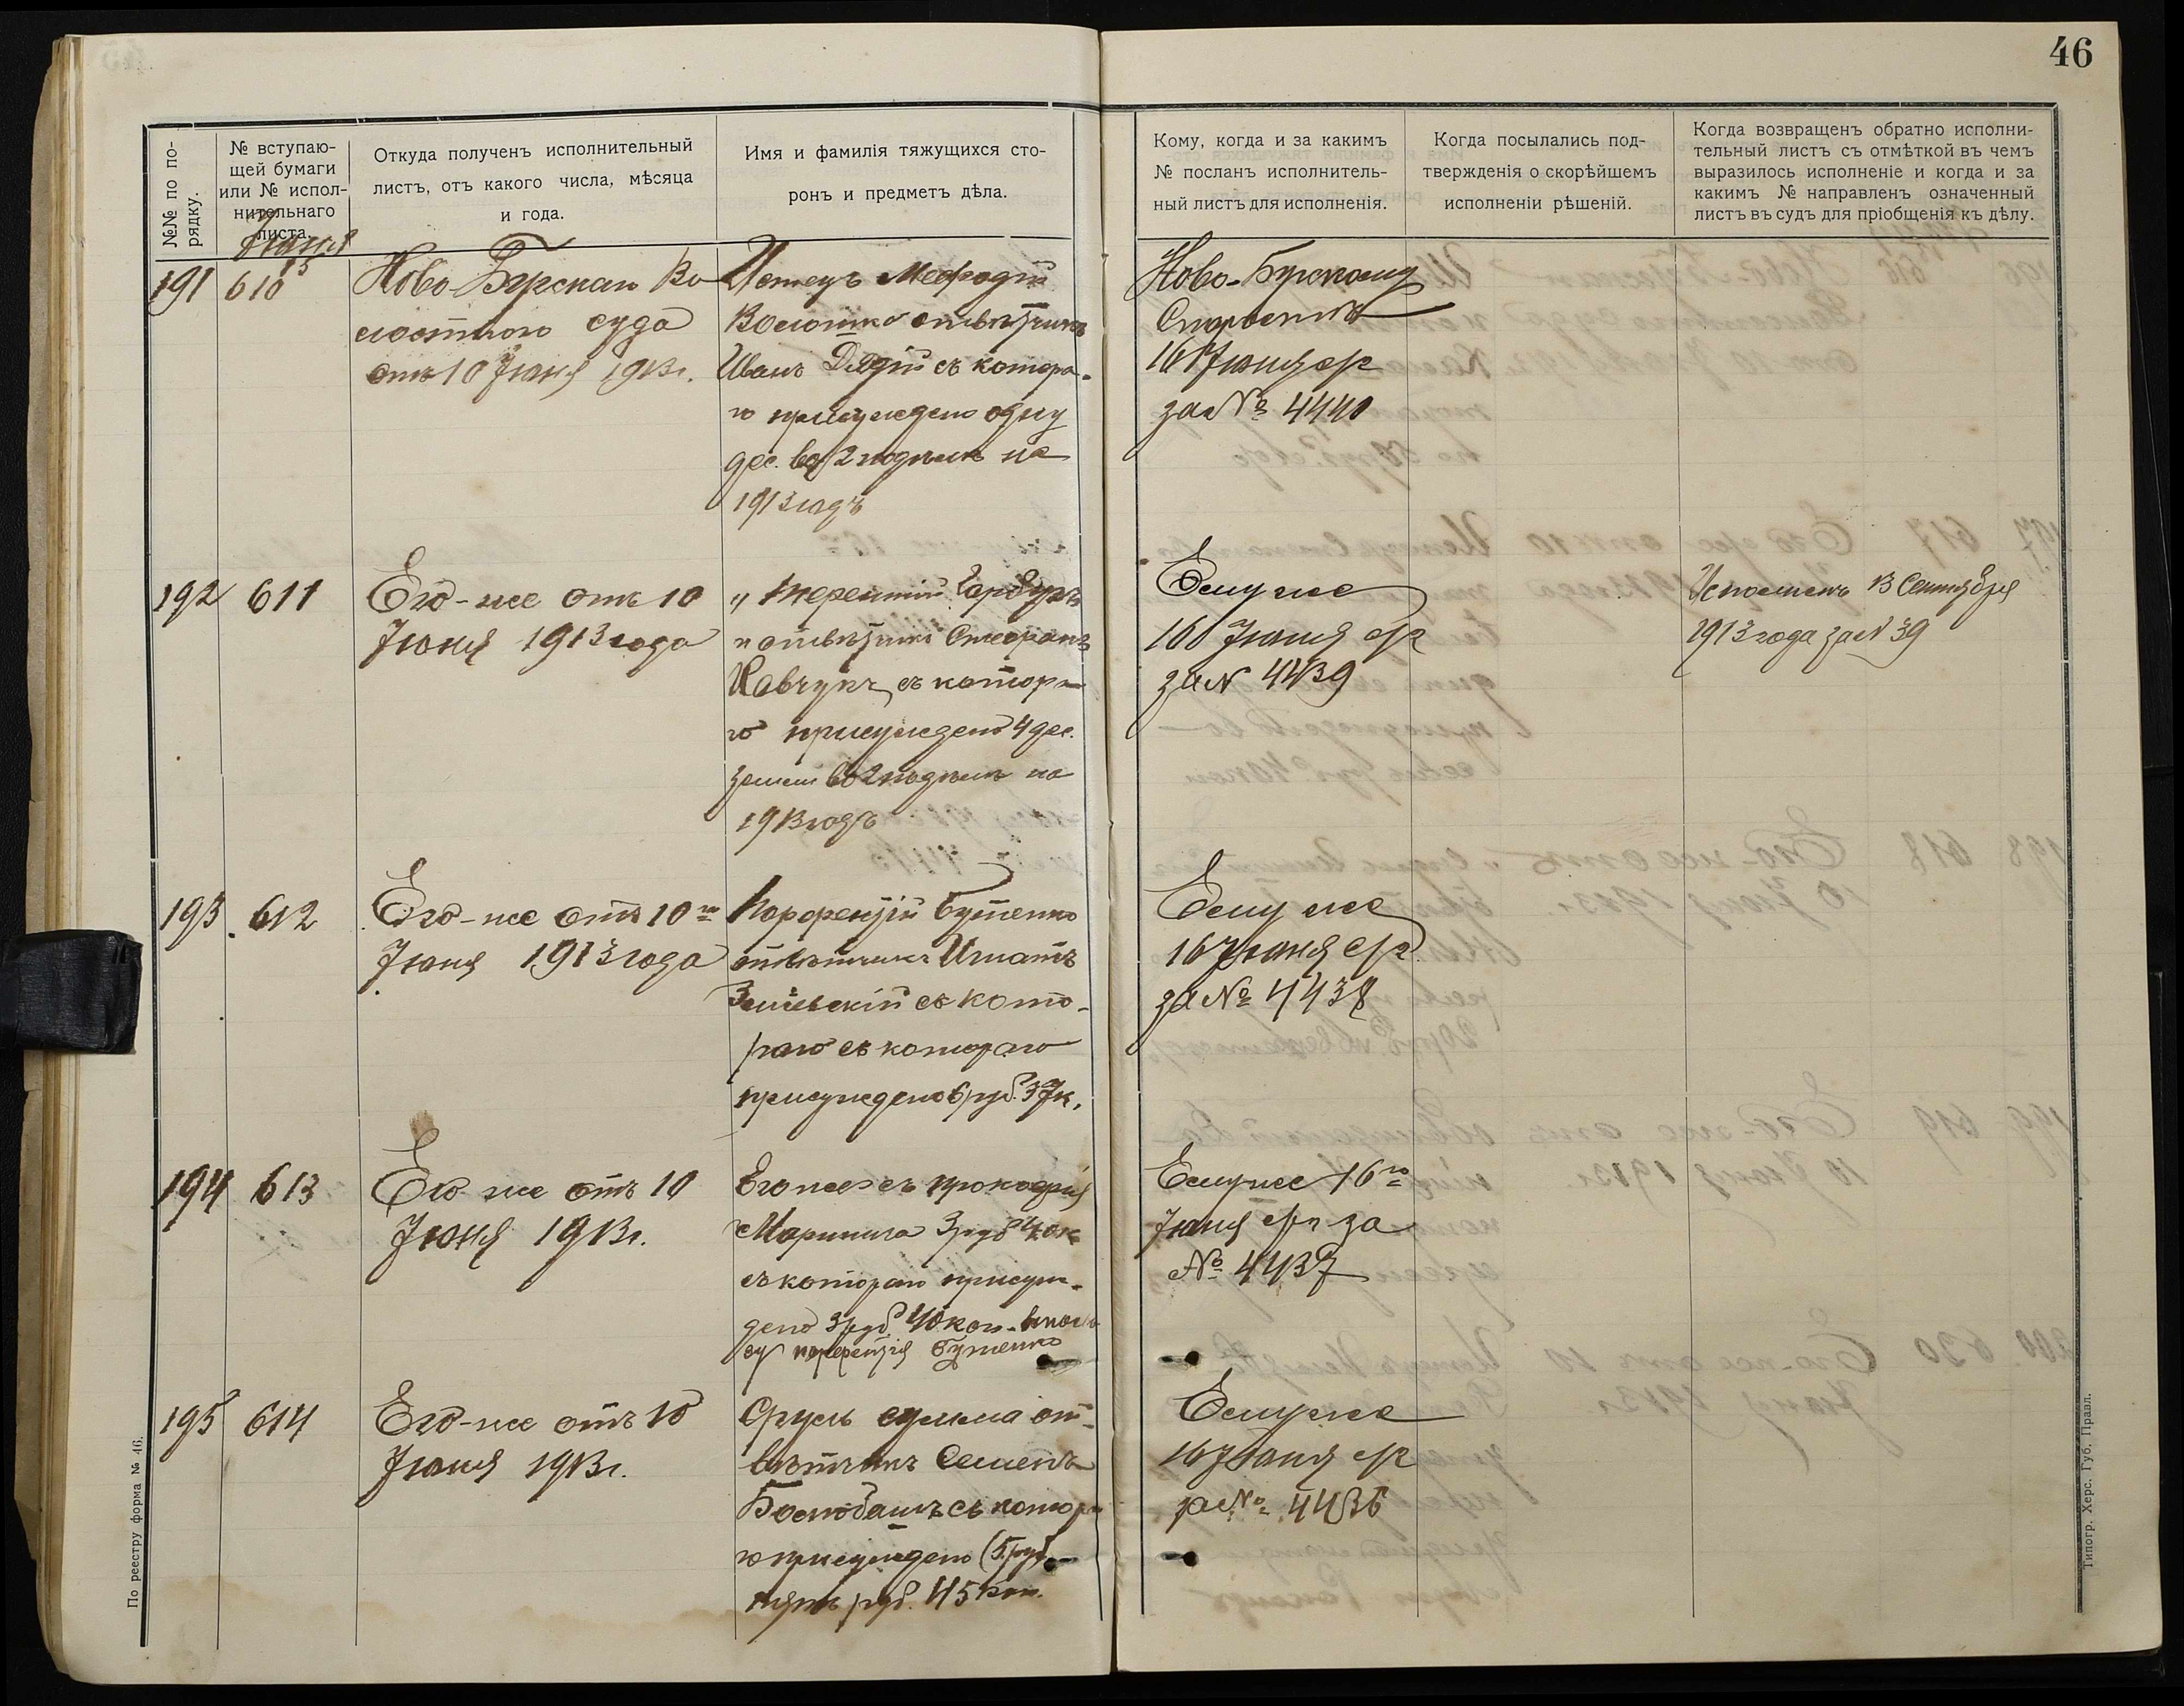 46
№№ по по-
рядку.
№ вступаю-
щей бумаги
или № испол-
нительнаго
листа.
Откуда полученъ исполнительный
листъ, отъ какого числа, мѣсяца
и года.
Имя и фамилія тяжущихся сто-
ронъ и предметъ дѣла.
Кому, когда и за какимъ
№ посланъ исполнитель-
ный листъ для исполненія.
Когда посылались под-
твержденія о скорѣйшемъ
исполненіи рѣшеній.
Когда возвращенъ обратно исполни-
тельный листъ съ отмѣткой въ чемъ
выразилось исполненіе и когда и за
какимъ № направленъ означенный
листъ въ судъ для пріобщенія къ дѣлу.
Іюня
15
191
610
Ново-Бугскаго Во
лостного суда
отъ 10 Іюня 1913 г.
Истецъ Мефодій
отвѣтчикъ
Иванъ съ котора-
го присуждено одну
дес. во 2 поднемъ на
1913 годъ
Ново-Бугскому
Старостѣ
16 Іюня с/г
за № 4440
192
611
Его-же отъ 10
Іюня 1913 года
" Терентій Гарбузъ
и отвѣтчикъ Стефанъ
Кавчукъ, съ котора-
го присуждено 4 дес.
земли во 2 поднемъ на
1913 годъ
Ему же
16 Іюня с/г
за № 4439
Исполненъ 13 Сентября
1913 года за № 39
193
612
Его-же отъ 10го
Іюня 1913 года
Порфентій Бутенко
отвѣтчикъ Игнатъ
съ кото-
раго съ котораго
присуждено 6 руб. 37 к.
Ему же
16 Іюня с/г
за № 4438
194
613
Его же отъ 10
Іюня 1913 г.
Его же съ Прокофія
Маринича 3 руб 40 к
съ котораго присуж-
дено 3 руб. 40 коп.
Порфентія Бутенко
Ему же 16го
Іюня с/г за
№ 4437
195
614
Его-же отъ 10
Іюня 1913 г.
Сруль от-
вѣтчикъ Семенъ
съ котора
го присуждено (5 руб.
пять руб. 45 коп.
Ему же
16 Іюня с/г
за № 4436
По реестру форма № 46.
Типогр. Херс. Губ. Правл.